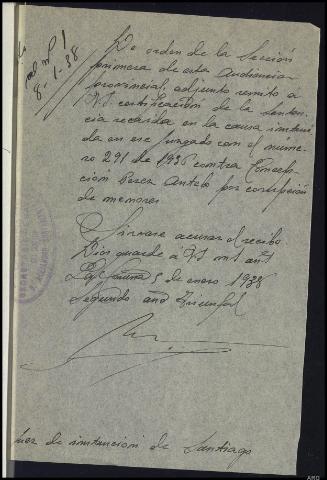 8-1-38
De orden de la Sección
primera de esta Audiencia
provincial, adjunto remito a
V.S. certificación de la senten-
cia recaida en la causa instrui-
da en ese juzgado con el nume-
ro 291 de 1936 contra Concep-
ción Perez Antelo por corrupción
de menores
Sirvase acusar el recibo
Dios guarde a VS ms as
La Coruña 5 de enero 1938
Segundo año Triunfal
Juez de instrucción de Santiago